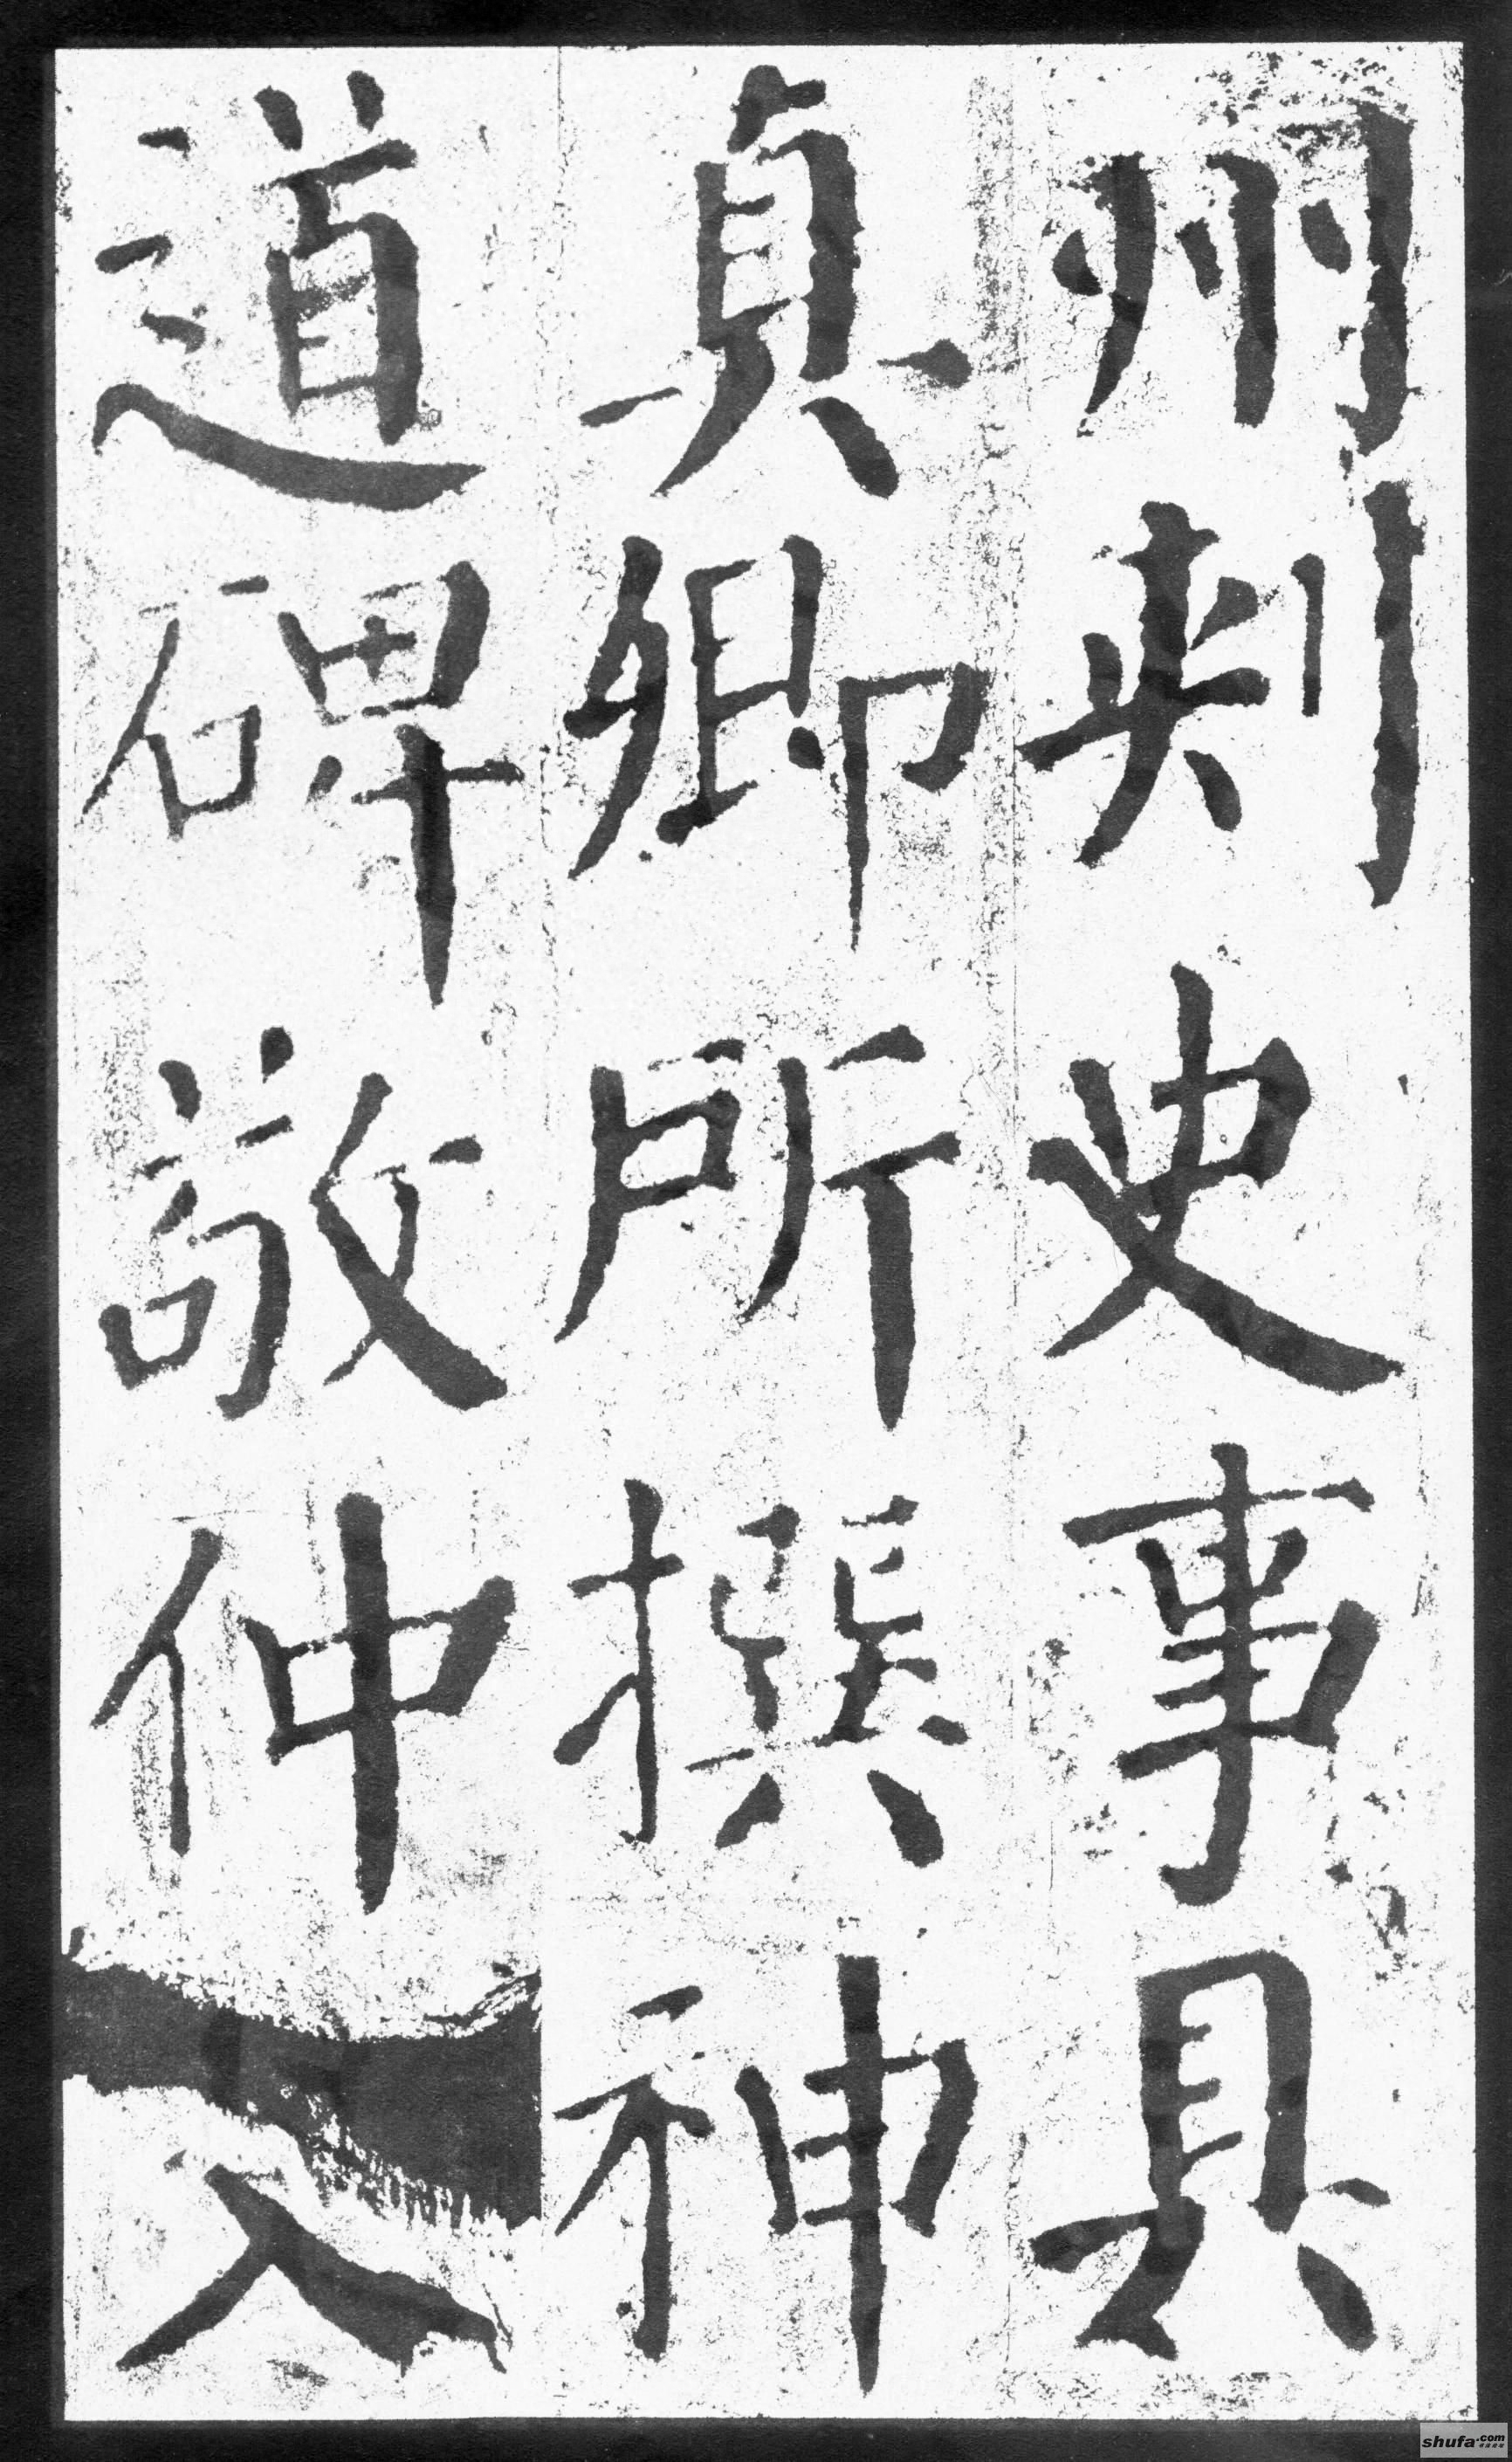 州刺史事具
真卿所撰神
道碑敬仲
shufa.com